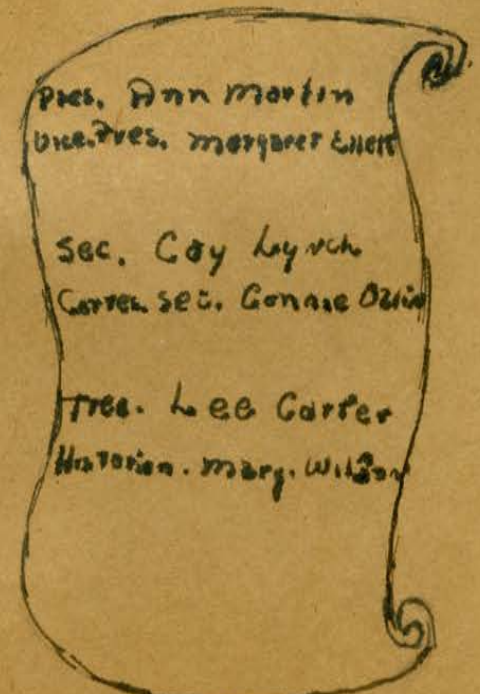 Pres. Ann Martin
Vice. Pres. Margaret Ellett
Sec. Coy Lynch
Corres. sec. Connie
Trea. Lee Carter
Historian. Mary. Wilson